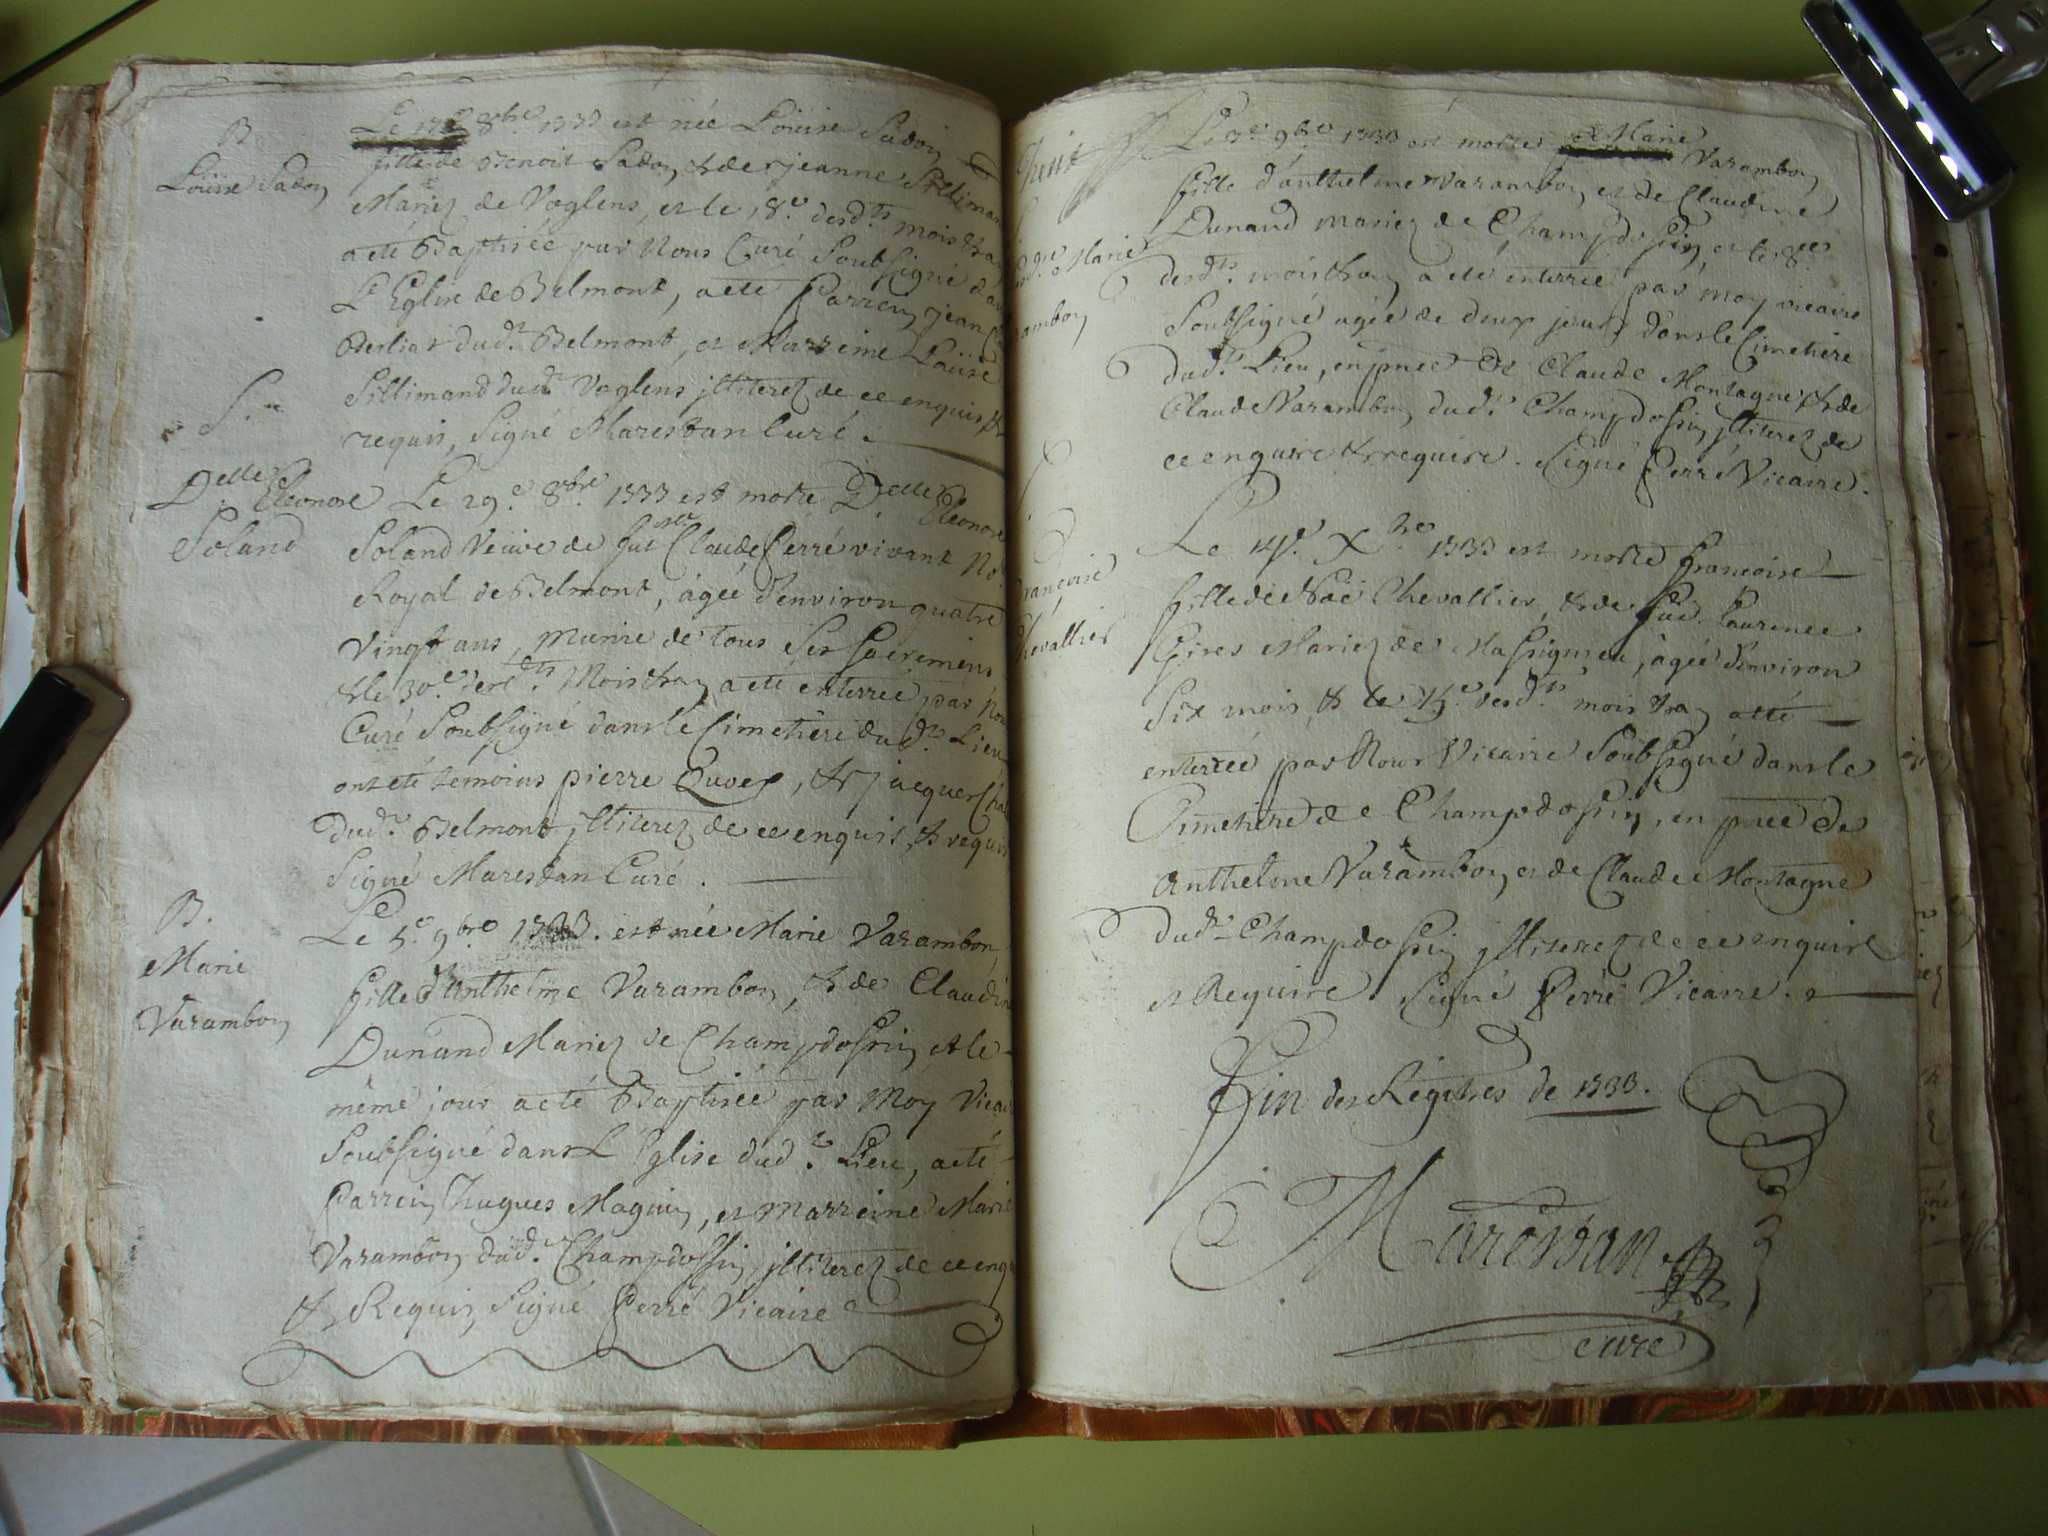 B
Louise Sadon
Le 17e 8bre 1733 est née Louise Sadon
fille de Benoit Sadon, & de jeanne Sillimand
Mariez de Voglens, et le 18e desdts mois & an
a eté Baptisée par Nous Curé Soubsigné dans
L'Eglise de Belmont, a eté Parrein jean
Berliat dudt Belmont, et Marreine Louise
Sillimand dudt Voglens jlliterez de ce enquis, &
requis, Signé Marestan Curé.
S.re
Delle Eleonore
Soland
Le 29e 8bre 1733 est morte Delle Eleonore
Soland Veuve de fut Claude Perré vivant No.
Royal de Belmont, agée d'environ quatre
Vingt ans, Munie de tous Ses Sacremens
& le 30e desdts Mois & an a eté enterrée par Nou
Curé Soubsigné dans le Cimetiere dudt Lieu
ont eté temoins pierre Quvet, & jacques
dudt Belmont jlliterez de ce enquis, & requis
Signé Marestan Curé.
B.
Marie
Varambon
Le 5e 9bre 1733. est née Marie Varambon,
fille d'Anthelme Varambon, & de Claudine
Dunand Mariez de Champdossin et le
même jour a eté Baptisée par Moy Vicai
Soubsigné dans L'Eglise dudt Lieu, a eté
Parrein Hugues Magnin, et Marreine Marie
Varambon dudt Champdossin jlliterez de ce enq
& Requis, Signé Perré Vicaire
Marie
ambon
Le 7e 9bre 1733 est morte Marie
Varambon
fille d'anthelme Varambon, et de Claudine
Dunand mariez de Champdossin et le 8e
desdts mois & an a eté enterrée par moy vicaire
Soubsigné agée de deux jours dans le Cimetiere
dudt Lieu, en pnce de Claude Montagne & de
Claude Varambon dudt Champdossin jlliterez de
ce enquire & require. Signé Perré Vicaire.
Francoise
Chevallier
Le 14e Xbre 1733 est morte francoise
fille de Noë Chevallier, & de fut Laurence
Gires Mariez de Massignieu, agée d'environ
Six mois, & le 15e desdts mois & an a eté
enterrée par Nous Vicaire Soubsigné dans le
Cimetiere de Champdossin, en pnce de
Anthelme Varambon, et de Claude Montagne
dudt Champdossin jlliterez de ce enquire
et Require. Signé Perré Vicaire.
Fin des Régitres de 1733.
Marestan
curé